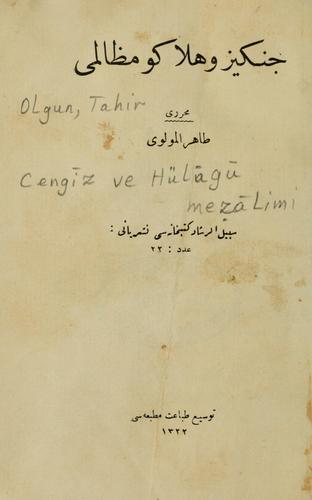 جنكيز وهلاكو مظالمى
محررى
Olgun, Tahir
طاهر المولوى
Cengīz ve Hülāgū
mezālimi
سبيل الرشاد كتبخانه‌سى نشرياتى :
عدد : ٢٢
توسيع طباعت مطبعه‌سى
١٣٢٢